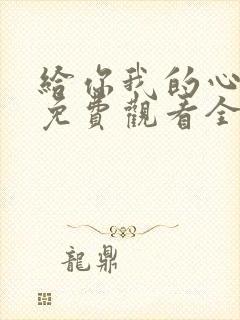 給你我的心
免費觀看全
龍鼎